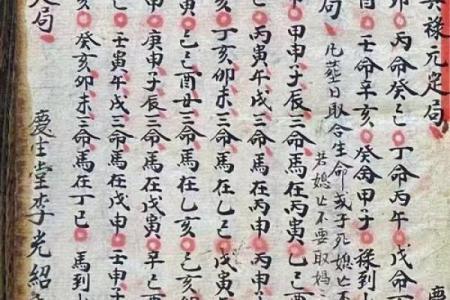 祿元定局
卯丙命癸巳丁命丙午戊命
酉壬命辛亥癸命甲子祿到
局 凡葬日取合生命或于死媳亡
媳亡不要取
甲申子辰三命馬在寅己巳酉
丙寅午戌三命馬在丙申
亥丁亥卯未三命馬在乙巳戊寅
寅己巳酉丑三命馬在乙亥己亥卯
申庚申子辰三命馬在戊寅辛巳酉
巳壬寅午戌三命馬在戊申壬申
癸亥卯未三命馬在丁巳馬到
局 慶生堂李光紹